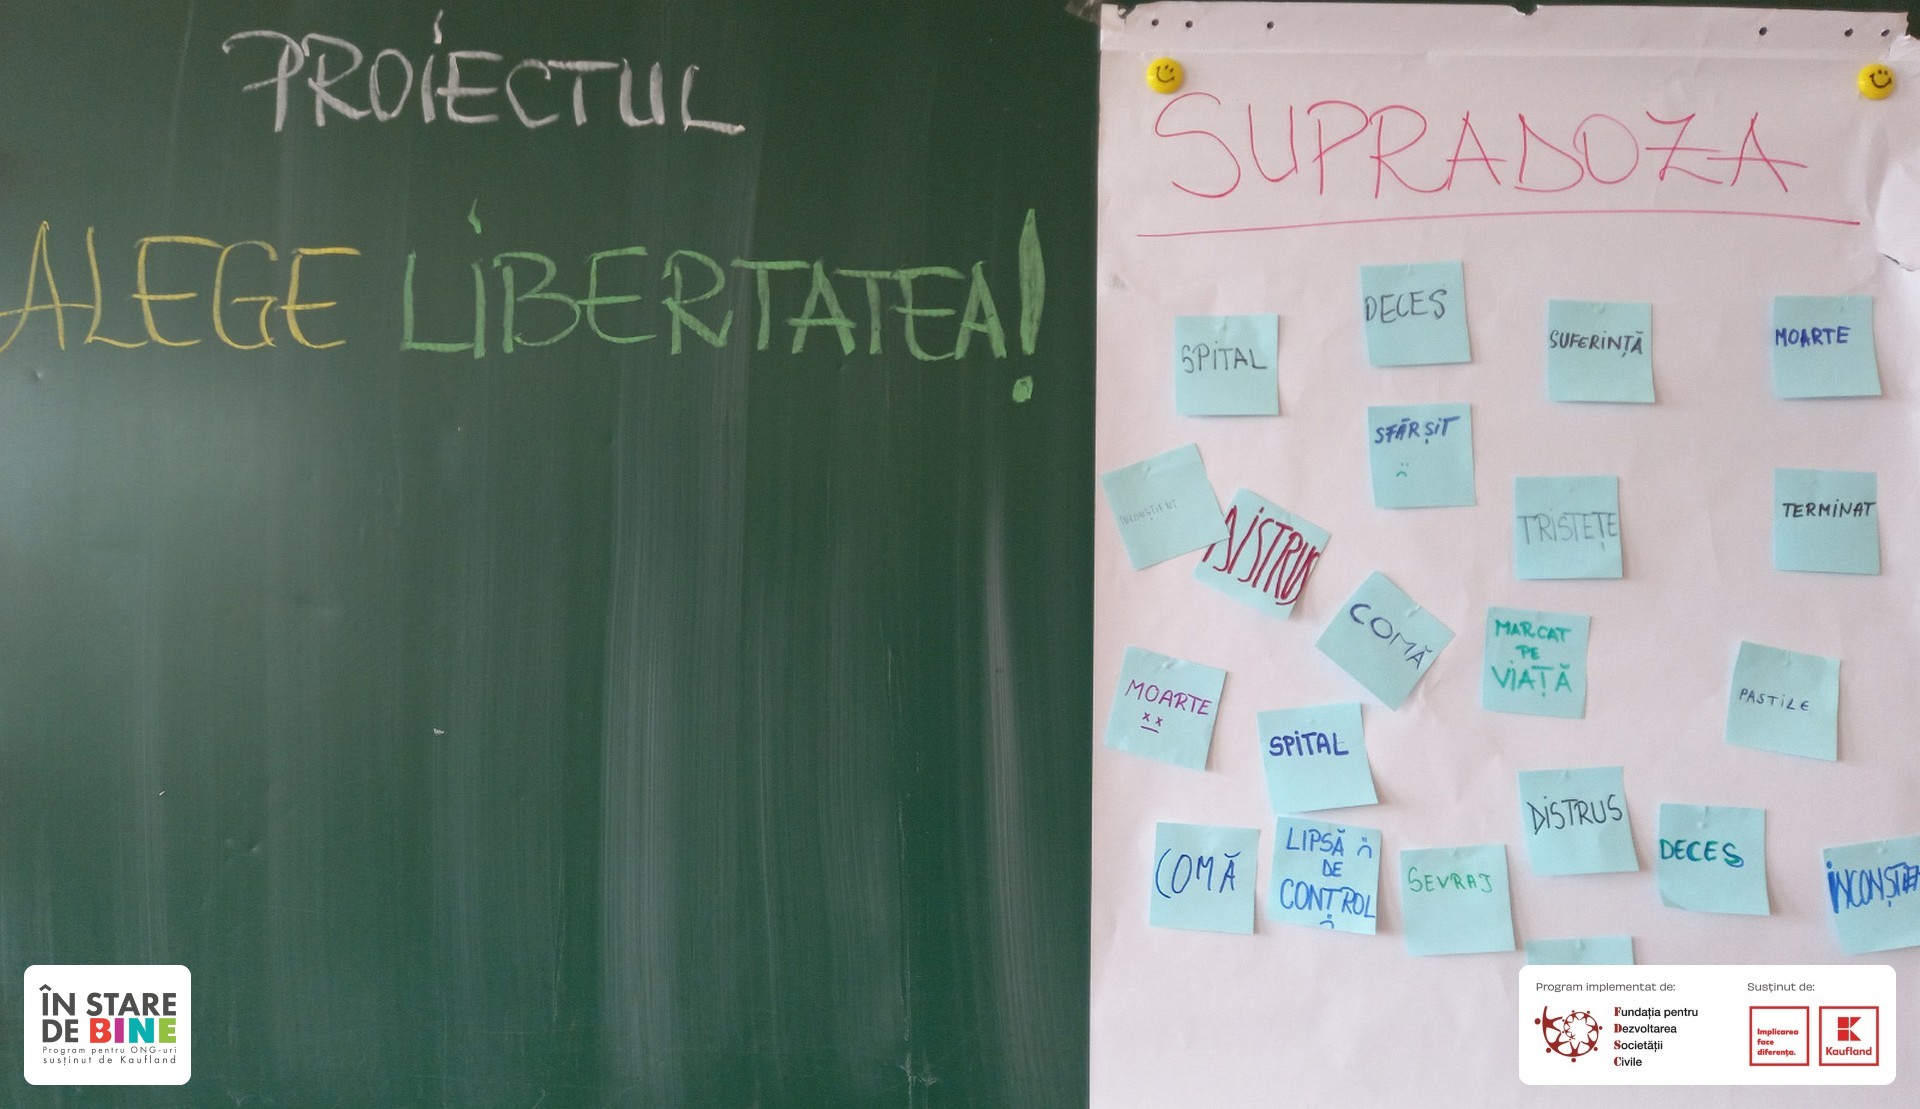 PROIECTUL
ALEGE LIBERTATEA!
SUPRADOZA
DECES
SPITAL
SUFERINȚĂ
MOARTE
SFÂRȘIT
INCONȘTIENT
DISTRUS
TRISTEȚE
TERMINAT
COMĂ
MARCAT
PE
VIAȚĂ
MOARTE
PASTILE
SPITAL
DISTRUS
COMĂ
LIPSĂ
DE
CONTROL
SEVRAJ
DECES
ÎN STARE
DE BINE
Program pentru ONG-uri
susținut de Kaufland
Program implementat de:
Fundația pentru
Dezvoltarea
Societății
Civile
Susținut de:
Implicarea
face
diferența.
Kaufland